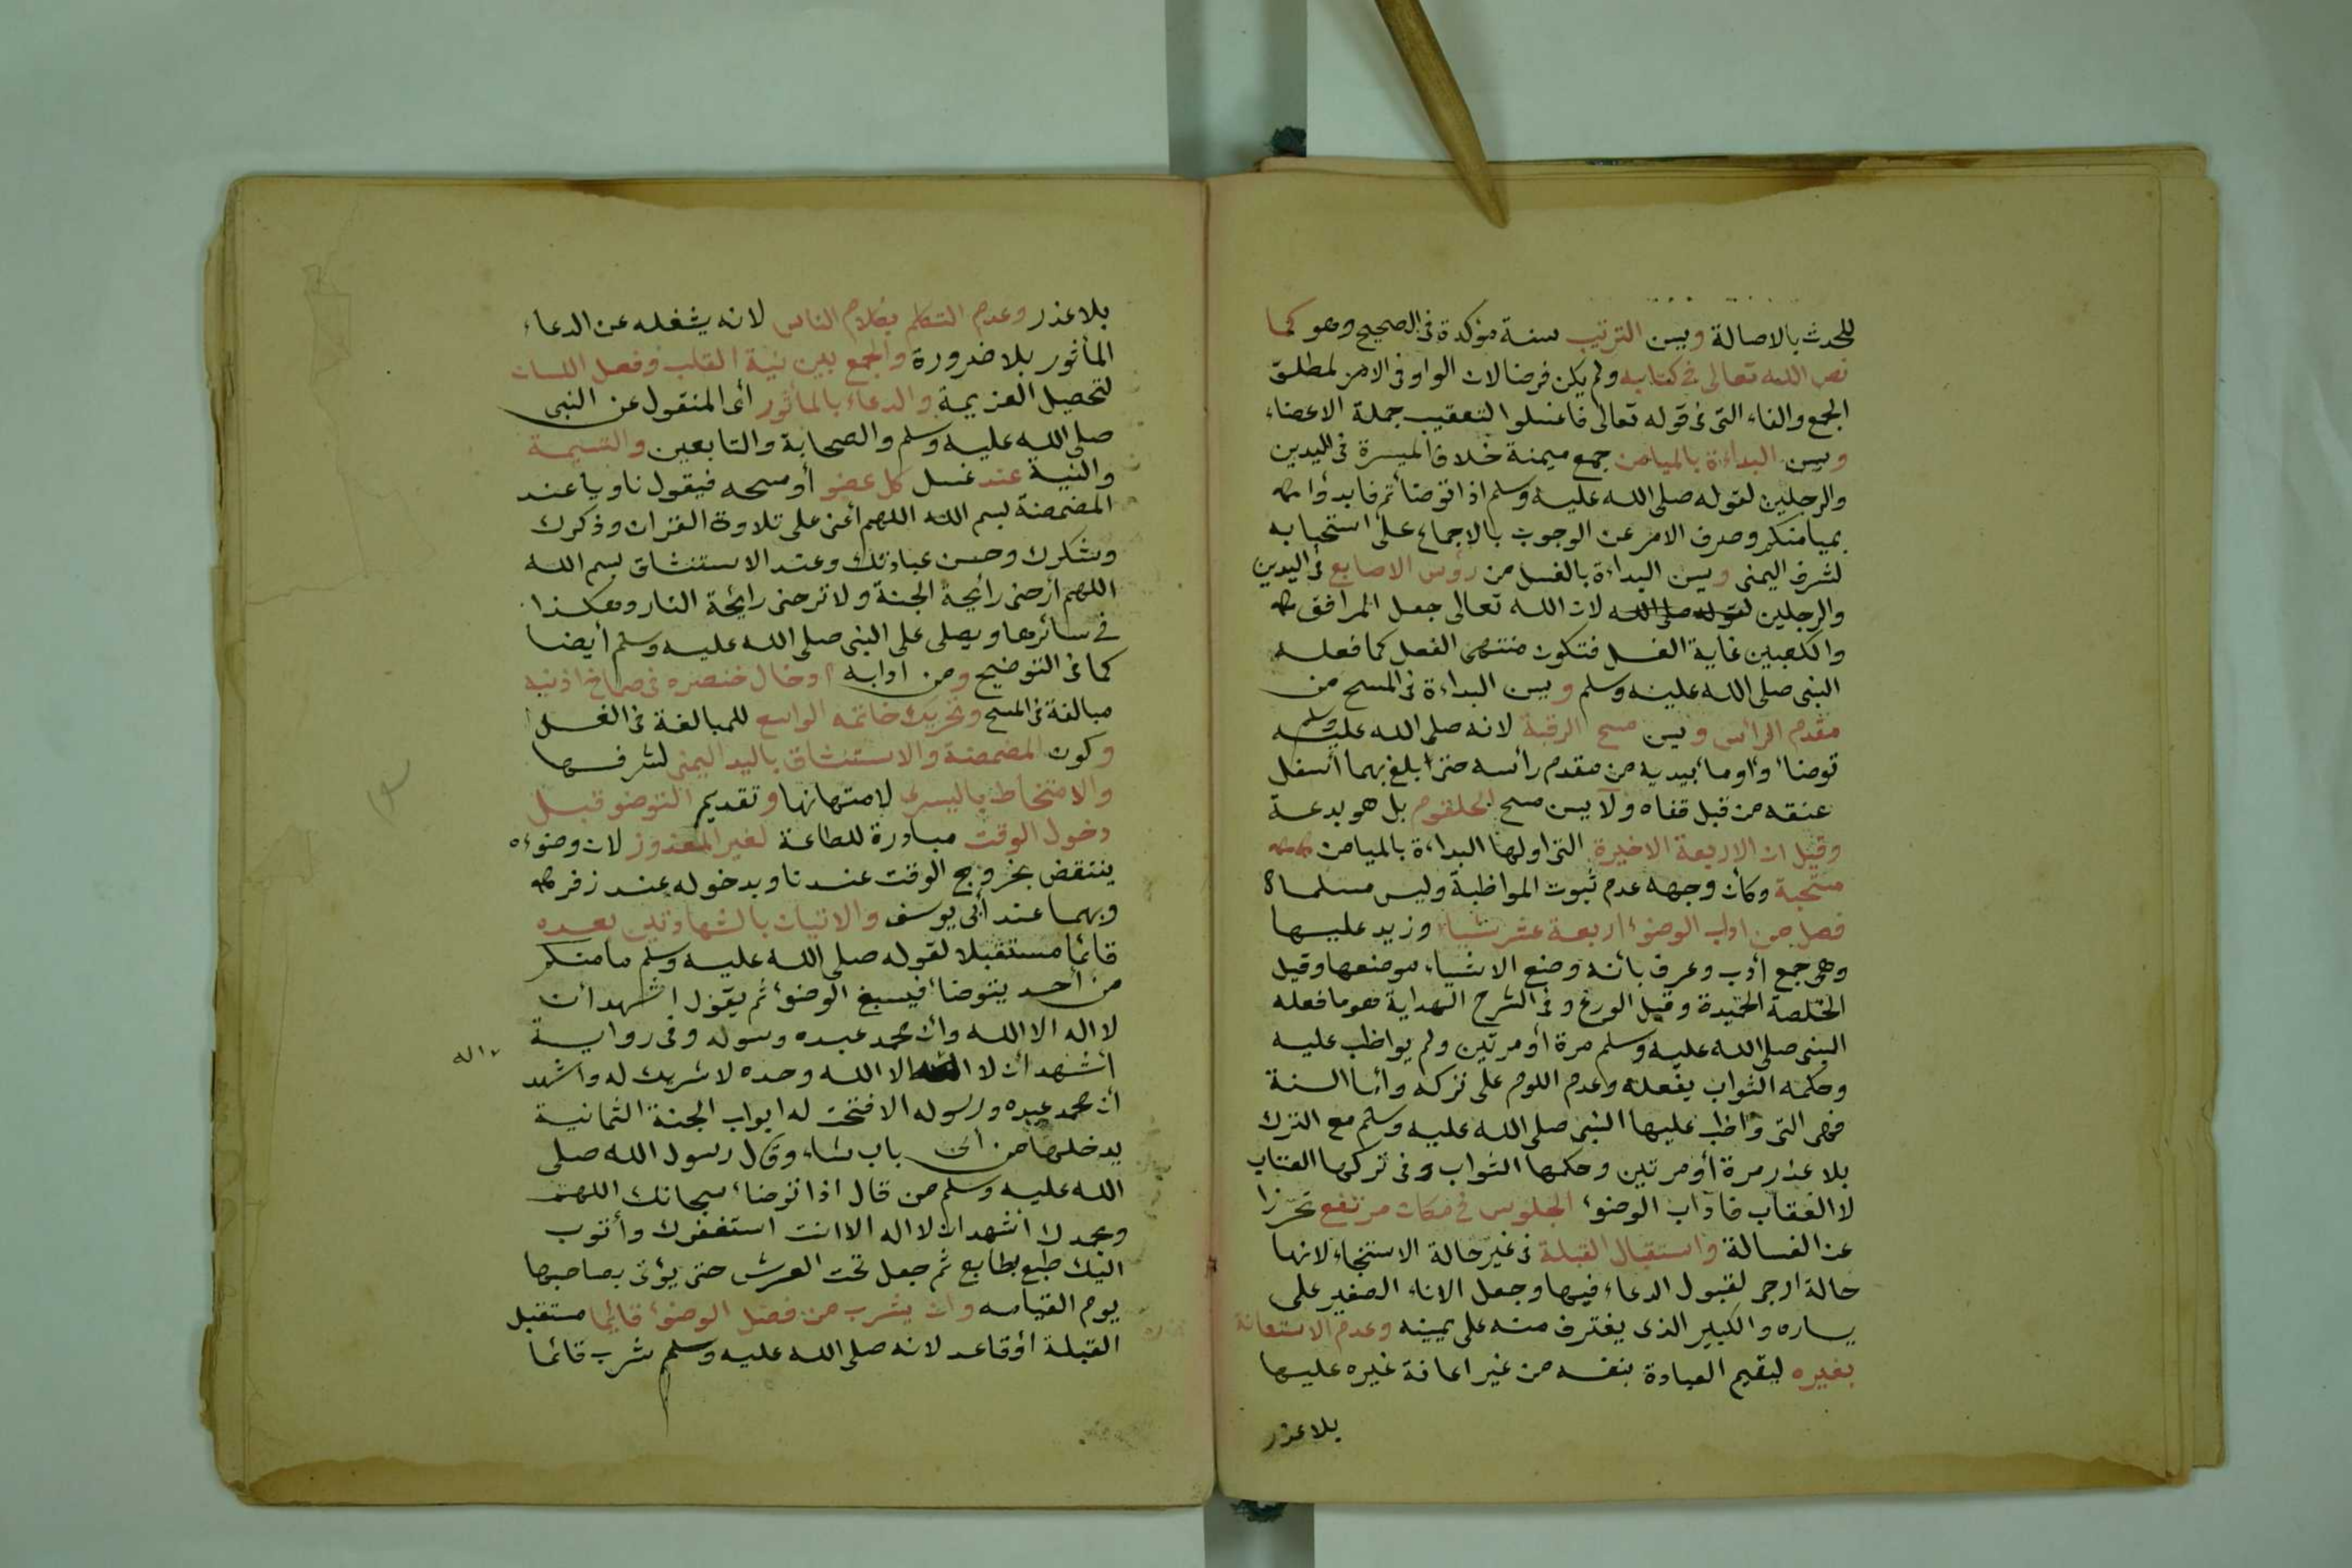 للحدث بالاصالة ويسن الترتيب سنة مؤكدة فى الصحيح وهو كما
نص الله تعالى فى كتابه ولم يكن فرضا لان الواو فى الامر لمطلق
الجمع والفاء التى فى قوله تعالى فاغسلوا لتعقيب جملة الاعضاء
ويسن البداءة بالميامن جمع ميمنة خلاف الميسرة فى اليدين
والرجلين لقوله صلى الله عليه وسلم اذا توضأتم فابدؤا
بميامنكم وصرف الامر عن الوجوب بالاجماع على استحبابه
لشرف اليمنى ويسن البداءة بالغسل من رؤس الاصابع فى اليدين
والرجلين لان الله تعالى جعل المرافق
والكعبين غاية الغسل فتكون منتهى الفعل كما فعله
النبى صلى الله عليه وسلم ويسن البداءة فى المسح من
مقدم الرأس ويسن مسح الرقبة لانه صلى الله عليه وسلم
توضأ واومأ بيديه من مقدم رأسه حتى بلغ بهما أسفل
عنقه من قبل قفاه ولا يسن مسح الحلقوم بل هو بدعة
وقيل ان الاربعة الاخيرة التى اولها البداءة بالميامن
مستحبة وكأن وجهه عدم ثبوت المواظبة وليس مسلما
فصل من اداب الوضوء اربعة عشر شيأ وزيد عليها
وهى جمع أدب وعرف بأنه وضع الاشياء موضعها وقيل
الخصلة الحميدة وقيل الورع وفى الشرح الهداية هو ما فعله
النبى صلى الله عليه وسلم مرة أو مرتين ولم يواظب عليه
وحكمه الثواب بفعله وعدم اللوم على تركه وأما السنة
فهى التى واظب عليها النبى صلى الله عليه وسلم مع الترك
بلا عذر مرة أو مرتين وحكمها الثواب وفى تركها العتاب
لا العقاب فآداب الوضوء الجلوس فى مكان مرتفع تحرزا
عن الغسالة واستقبال القبلة فى غير حالة الاستنجاء لانها
حالة ارجى لقبول الدعاء فيها وجعل الاناء الصغير على
يساره والكبير الذى يغترف منه على يمينه وعدم الاستعانة
بغيره ليقيم العبادة بنفسه من غير اعانة غيره عليها
بلا عذر
بلا عذر وعدم التكلم بكلام الناس لانه يشغله عن الدعاء
المأثور بلا ضرورة والجمع بين نية القلب وفعل اللسان
لتحصيل العزيمة والدعاء بالمأثور أى المنقول عن النبى
صلى الله عليه وسلم والصحابة والتابعين والتسمية
والنية عند غسل كل عضو أو مسحه فيقول ناويا عند
المضمضة بسم الله اللهم أعنى على تلاوة القران وذكرك
وشكرك وحسن عبادتك وعند الاستنشاق بسم الله
اللهم أرحنى رايحة الجنة ولا ترحنى رايحة النار وهكذا
فى سائرها ويصلى على النبى صلى الله عليه وسلم أيضا
كما فى التوضيح ومن ادابه ادخال خنصره فى صماخ اذنيه
مبالغة فى المسح وتحريك خاتمه الواسع للمبالغة فى الغسل
وكون المضمضة والاستنشاق باليد اليمنى لشرفها
والامتخاط باليسرى لامتهانها وتقديم التوضو قبل
دخول الوقت مبادرة للطاعة لغير المعذور لان وضوءه
ينتقض بخروج الوقت عندنا وبدخوله عند زفر
وبهما عند أبى يوسف والاتيان بالشهادتين بعده
قائما مستقبلا لقوله صلى الله عليه وسلم ما منكم
من أحد يتوضأ فيسبغ الوضوء ثم يقول اشهد أن
لا اله الا الله وأن محمد عبده وسوله وفى رواية
أشهد أن لا الا الله وحده لا شريك له واشهد
اله
أن محمد عبده ورسوله الا فتحت له ابواب الجنة الثمانية
يدخلها من أى باب شاء وقال رسول الله صلى
الله عليه وسلم من قال اذا توضأ سبحانك اللهم
وبحمدك أشهد ان لا اله الا انت استغفرك وأتوب
اليك طبع بطابع ثم جعل تحت العرش حتى يؤتى بصاحبها
يوم القيامه وان يشرب من فضل الوضوء قائما مستقبل
القبلة أو قاعد لانه صلى الله عليه وسلم شرب قائما